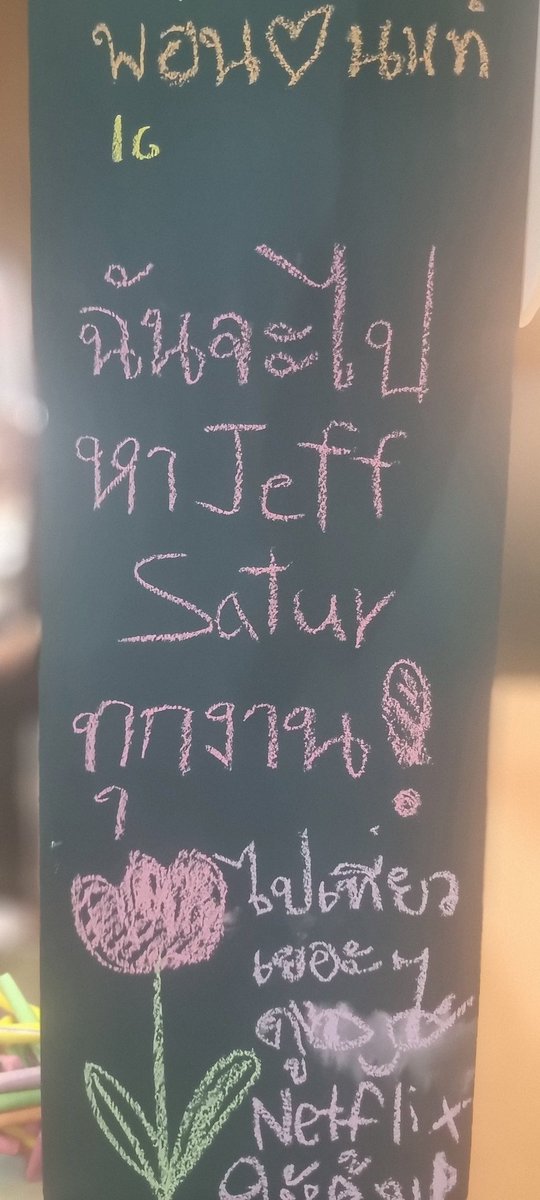 พอน♡นแท้
16
ฉันจะไป
หา Jeff
Satur
ทุกงาน!
ไปเที่ยว
เยอะๆ
ดู
Netflix